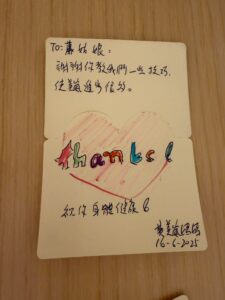 To: 蕭姑娘:
謝謝你教我們一些技巧,
使美進步信心。
thanks!
祝你身體健康
16-6-2025